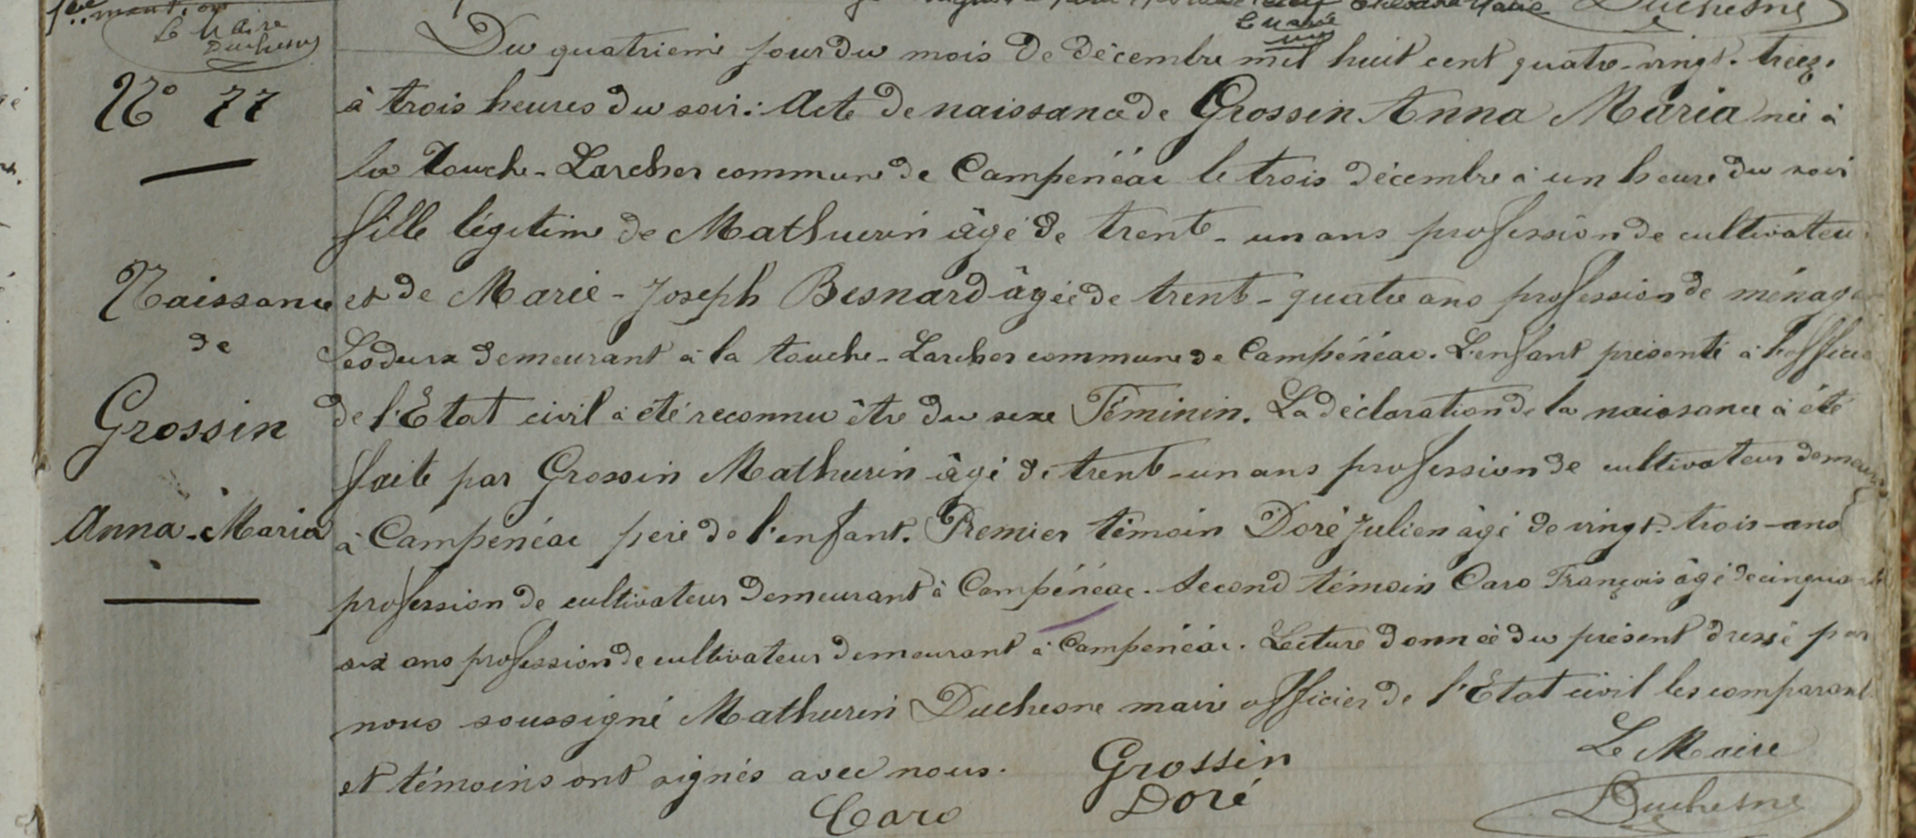 Le Maire
Duchesne
Duchesne
Du quatrième jour du mois de décembre mil huit cent quatre-vingt-treize
N° 77
à trois heures du soir : Acte de naissance de Grossin Anna Maria née à
la Touche-Larcher commune de Campénéac le trois décembre à un heure du soir
fille légitime de Mathurin âgé de trente-un ans profession de cultivateur
Naissance
et de Marie-Joseph Besnard âgée de trente-quatre ans profession de ménagère
de
Les deux demeurant à la touche-Larcher commune de Campénéac. L'enfant présenté à l'officier
Grossin
de l'Etat civil à été reconnu être du sexe Féminin. La déclaration de la naissance à été
faite par Grossin Mathurin âgé de trente-un ans profession de cultivateur demeurant
Anna-Maria
à Campénéac père de l'enfant. Premier témoin Doré Julien âgé de vingt-trois-ans
profession de cultivateur demeurant à Campénéac. Second témoin Caro François âgé de cinquante
six ans profession de cultivateur demeurant à Campénéac. Lecture donnée du présent dressé par
nous soussigné Mathurin Duchesne maire officier de l'Etat civil les comparant
et témoins ont signés avec nous.
Grossin
Le Maire
Caro
Doré
Duchesne